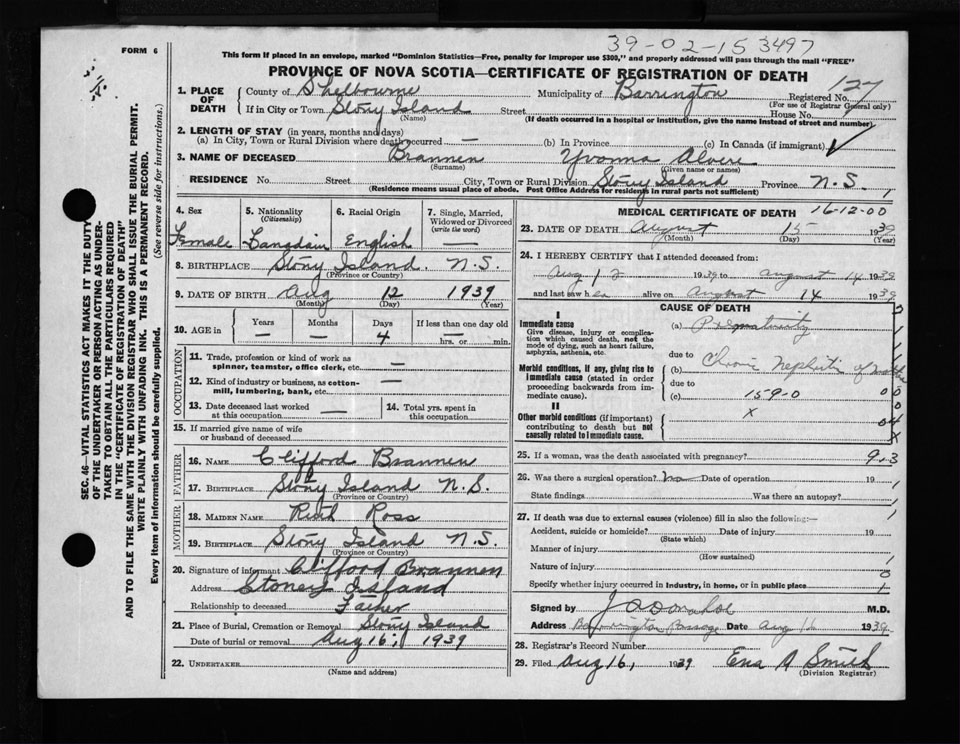 39-02-15 3497
FORM 6
This form if placed in an envelope, marked "Dominion Statistics—Free, penalty for improper use $300," and properly addressed will pass through the mail "FREE"
PROVINCE OF NOVA SCOTIA—CERTIFICATE OF REGISTRATION OF DEATH
1. PLACE OF DEATH
County of Shelbourne Municipality of Barrington Registered No. 127
(For use of Registrar General only)
If in City or Town Stony Island Street House No.
(Name) (If death occurred in a hospital or institution, give the name instead of street and number)
2. LENGTH OF STAY (in years, months and days)
(a) In City, Town or Rural Division where death occurred — (b) In Province (c) In Canada (if immigrant)
3. NAME OF DECEASED Brannen Yvonna Alvere
(Surname) (Given name or names)
RESIDENCE No. Street City, Town or Rural Division Stony Island Province N.S.
(Residence means usual place of abode. Post Office Address for residents in rural parts not sufficient)
4. Sex 5. Nationality (Citizenship) 6. Racial Origin 7. Single, Married, Widowed or Divorced (write the word)
Female English —
8. BIRTHPLACE Stony Island. N.S.
(Province or Country)
9. DATE OF BIRTH Aug 12 1939
(Month) (Day) (Year)
10. AGE in Years Months Days If less than one day old
— — 4 — hrs. or min.
OCCUPATION
11. Trade, profession or kind of work as spinner, teamster, office clerk, etc. —
12. Kind of industry or business, as cotton-mill, lumbering, bank, etc. —
13. Date deceased last worked at this occupation —
14. Total yrs. spent in this occupation
15. If married give name of wife or husband of deceased
FATHER
16. NAME Clifford Brannen
17. BIRTHPLACE Stony Island N.S.
(Province or Country)
MOTHER
18. MAIDEN NAME Ruth Ross
19. BIRTHPLACE Stony Island N.S.
(Province or Country)
20. Signature of informant Clifford Brannen
Address Stoney Island
Relationship to deceased Father
21. Place of Burial, Cremation or Removal Stony Island
Date of burial or removal Aug 16, 1939
22. UNDERTAKER
(Name and address)
MEDICAL CERTIFICATE OF DEATH 16-12-00
23. DATE OF DEATH August 15 1939
(Month) (Day) (Year)
24. I HEREBY CERTIFY that I attended deceased from:
Aug 12 1939 to August 14 1939
and last saw her alive on August 14 1939
CAUSE OF DEATH
I
Immediate cause (a) Prematurity
Give disease, injury or complication which caused death, not the mode of dying, such as heart failure, asphyxia, asthenia, etc.
due to Chronic Nephritis of mother
Morbid conditions, if any, giving rise to immediate cause (stated in order proceeding backwards from immediate cause).
(b)
due to
(c) 159-0
II
Other morbid conditions (if important) contributing to death but not causally related to immediate cause. X
25. If a woman, was the death associated with pregnancy? 9-3
26. Was there a surgical operation? no Date of operation 19
State findings Was there an autopsy?
27. If death was due to external causes (violence) fill in also the following:—
Accident, suicide or homicide? Date of injury 19
(State which)
Manner of injury
(How sustained)
Nature of injury
Specify whether injury occurred in industry, in home, or in public place
Signed by M.D.
Address Barrington Passage Date Aug 16 1939
28. Registrar's Record Number
29. Filed Aug 16, 1939 Ena A Smith
(Division Registrar)
SEC. 46—VITAL STATISTICS ACT MAKES IT THE DUTY
OF THE UNDERTAKER OR PERSON ACTING AS UNDERTAKER
TO OBTAIN ALL THE PARTICULARS REQUIRED
IN THE "CERTIFICATE OF REGISTRATION OF DEATH"
AND TO FILE THE SAME WITH THE DIVISION REGISTRAR WHO SHALL ISSUE THE BURIAL PERMIT.
WRITE PLAINLY WITH UNFADING INK. THIS IS A PERMANENT RECORD.
Every item of Information should be carefully supplied. (See reverse side for instructions.)